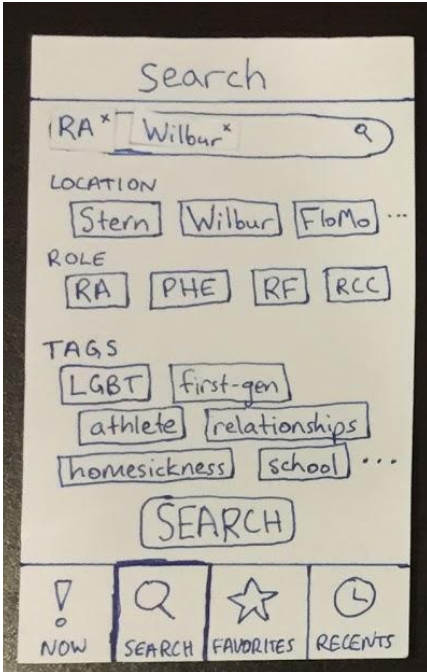 Search
RA x Wilbur x
LOCATION
Stern Wilbur FloMo ...
ROLE
RA PHE RF RCC
TAGS
LGBT first-gen
athlete relationships
homesickness school ...
SEARCH
! NOW SEARCH FAVORITES RECENTS